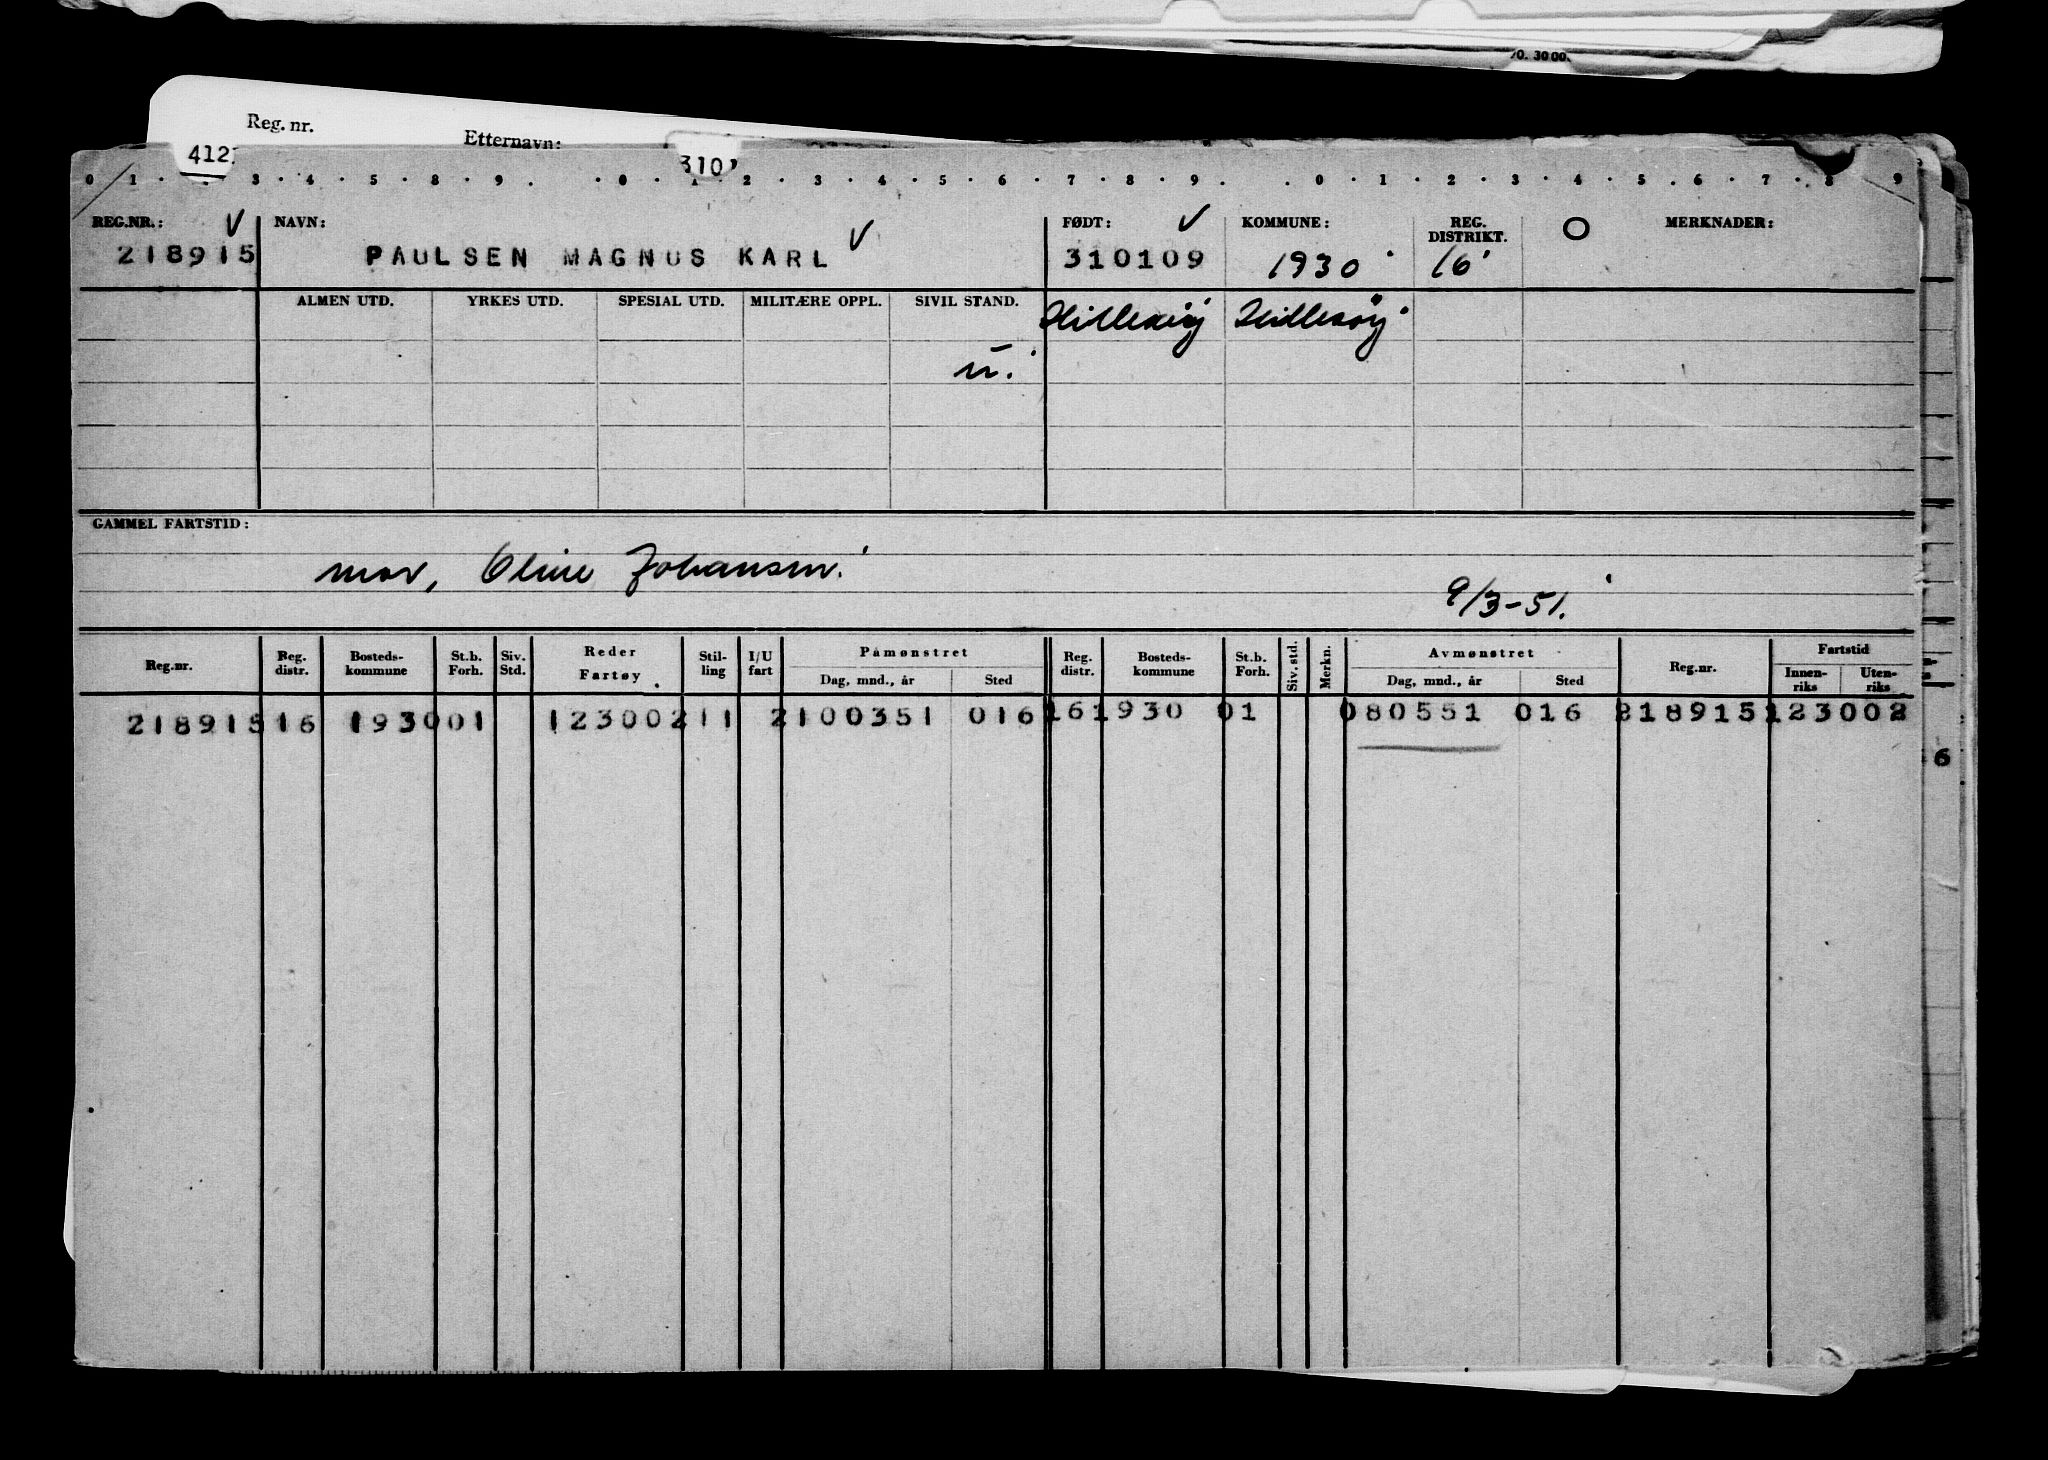 0. 3000.
Reg. nr. Etternavn:
412 310
0 1 . . . 3 . 4 . 5 . 8 . 9 . . 0 . 1 . 2 . 3 . 4 . 5 . 6 . 7 . 8 . 9 . . 0 . 1 . 2 . 3 . 4 . 5 . 6 . 7 . 8 . 9
REG.NR.: V NAVN: V FØDT: V KOMMUNE: REG. DISTRIKT. O MERKNADER:
218915 PAULSEN MAGNUS KARL 310109 1930 16
ALMEN UTD. YRKES UTD. SPESIAL UTD. MILITÆRE OPPL. SIVIL STAND. Hillesøy Hillesøy
u.
GAMMEL FARTSTID:
mor, Oline Johansen.
9/3-51.
Reg.nr. Reg. distr. Bosteds-kommune St.b. Forh. Siv. Std. Reder Fartøy Stil-ling I/U fart Påmønstret Dag, mnd., år Sted Reg. distr. Bosteds-kommune St.b. Forh. Siv. std. Merkn. Avmønstret Dag, mnd., år Sted Reg.nr. Fartstid Innen-riks Uten-riks
218915 16 1930 01 1230021 1 2 100351 016 16 1930 01 080551 016 218915 123002
6